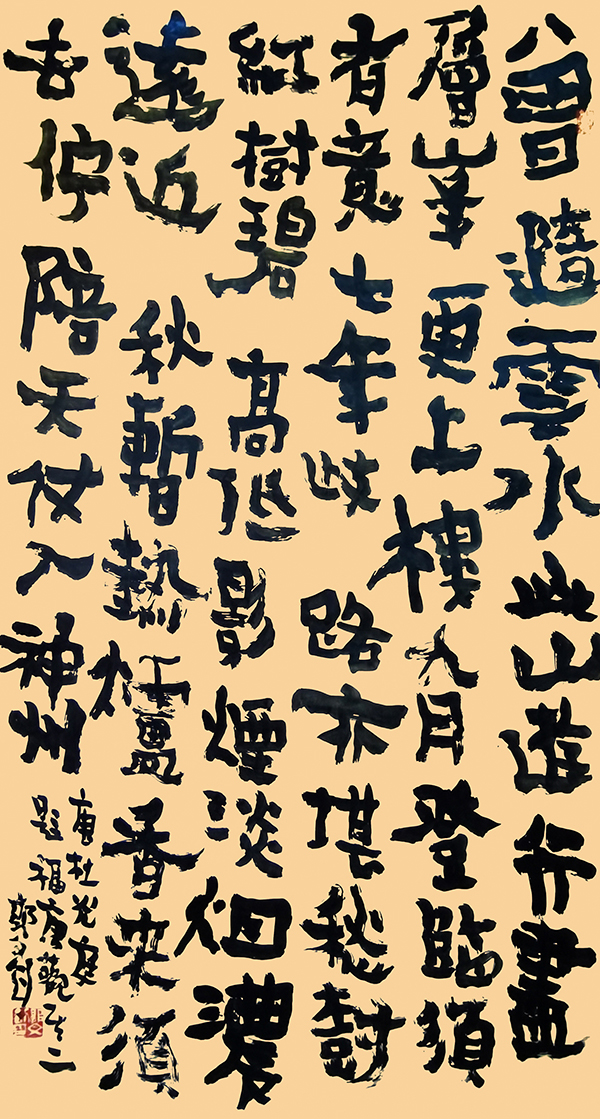 曾隨雲水此山遊行盡
層峯更上樓九月登臨須
有意七年岐路亦堪愁樹
紅樹碧高低影煙淡烟濃
遠近秋暫熱爐香須
去佇陪天仗入神州
唐杜光庭
題福唐觀其二
鄭